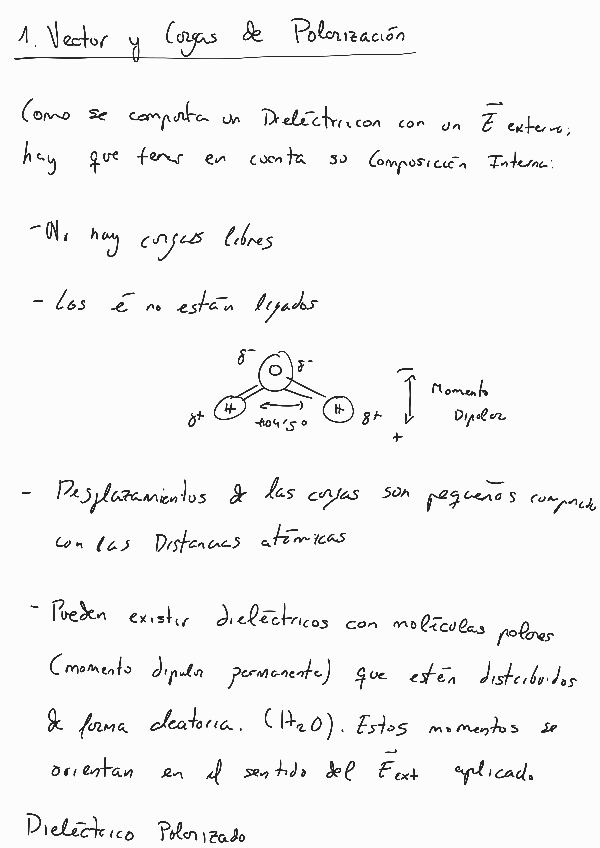 1. Vector y Cargas de Polarización
Como se comporta un Dieléctriicon con un E externo,
hay que tener en cuenta su Composición Interna:
- No hay cargas libres
- Los e no están ligados
δ- O δ-
δ+ H H δ+
104'5°
-
Momento
Dipolar
+
- Desplazamientos de las cargas son pequeños comparado
con las Distancias atómicas
- Pueden existir dieléctricos con moléculas polares
(momento dipolar permanente) que estén distribuidos
de forma aleatoria. (H₂O). Estos momentos se
orientan en el sentido del Eext aplicado.
Dieléctrico Polarizado